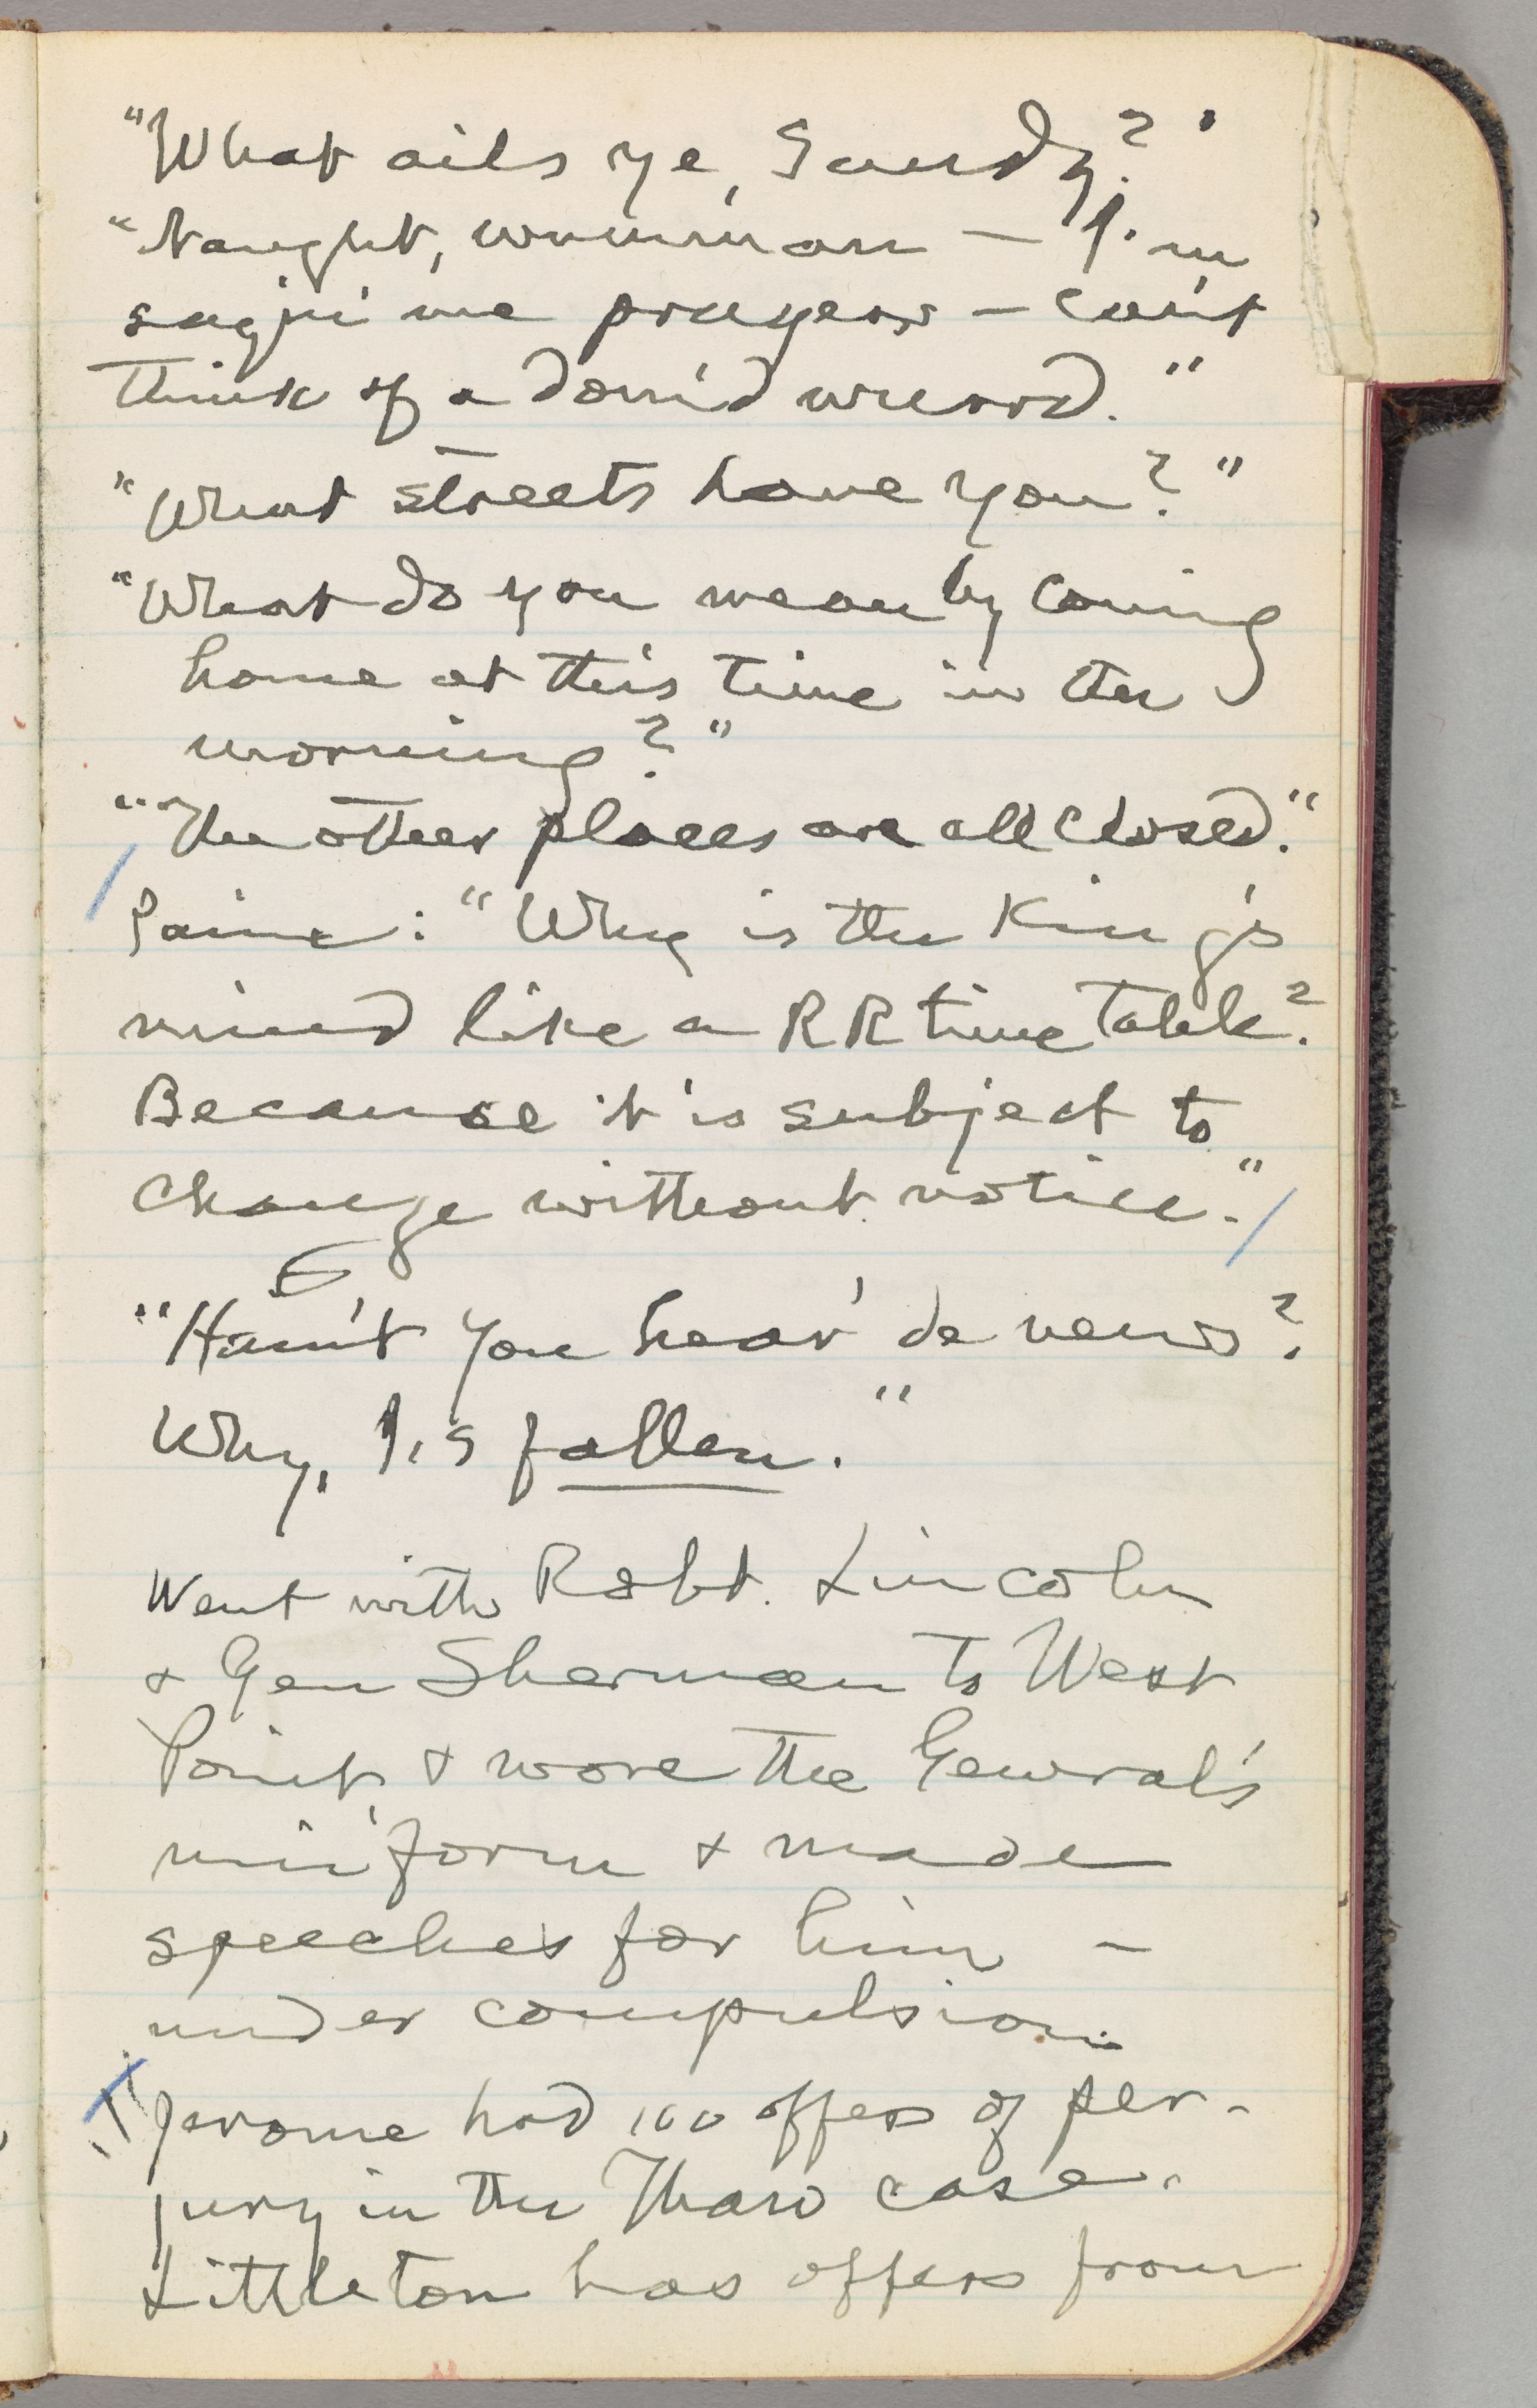 "What ails ye, Sandy?"
"Naught, wumman — I'm
sayin' me prayers — can't
think of a dom'd wurrd."
"What streets have you?"
"What do you mean by coming
home at this time in the
morning?"
"The other places are all closed."
Paine: "Why is the King's
mind like a RR time table?
Because it is subject to
change without notice."
"Hain't you hear' de news?
Why, I's fallen."
Went with Robt. Lincoln
& Gen Sherman to West
Point, & wore the General's
uniform & made
speeches for him —
under compulsion.
Jerome had 100 offers of per-
jury in the Thaw case.
Littleton has offers from